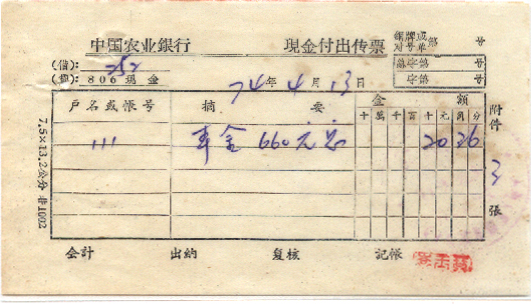 中国农业銀行 現金付出传票
銅牌或対号单 第 号
總字第 号
字第 号
(借):
(貸): 806 現金
74年4月13日
戶名或帳号 摘要 金額
十萬千百十元角分
111 660元 20 26
附件 3 張
7.5×13.2公分 非1002
会計 出納 复核 記帳